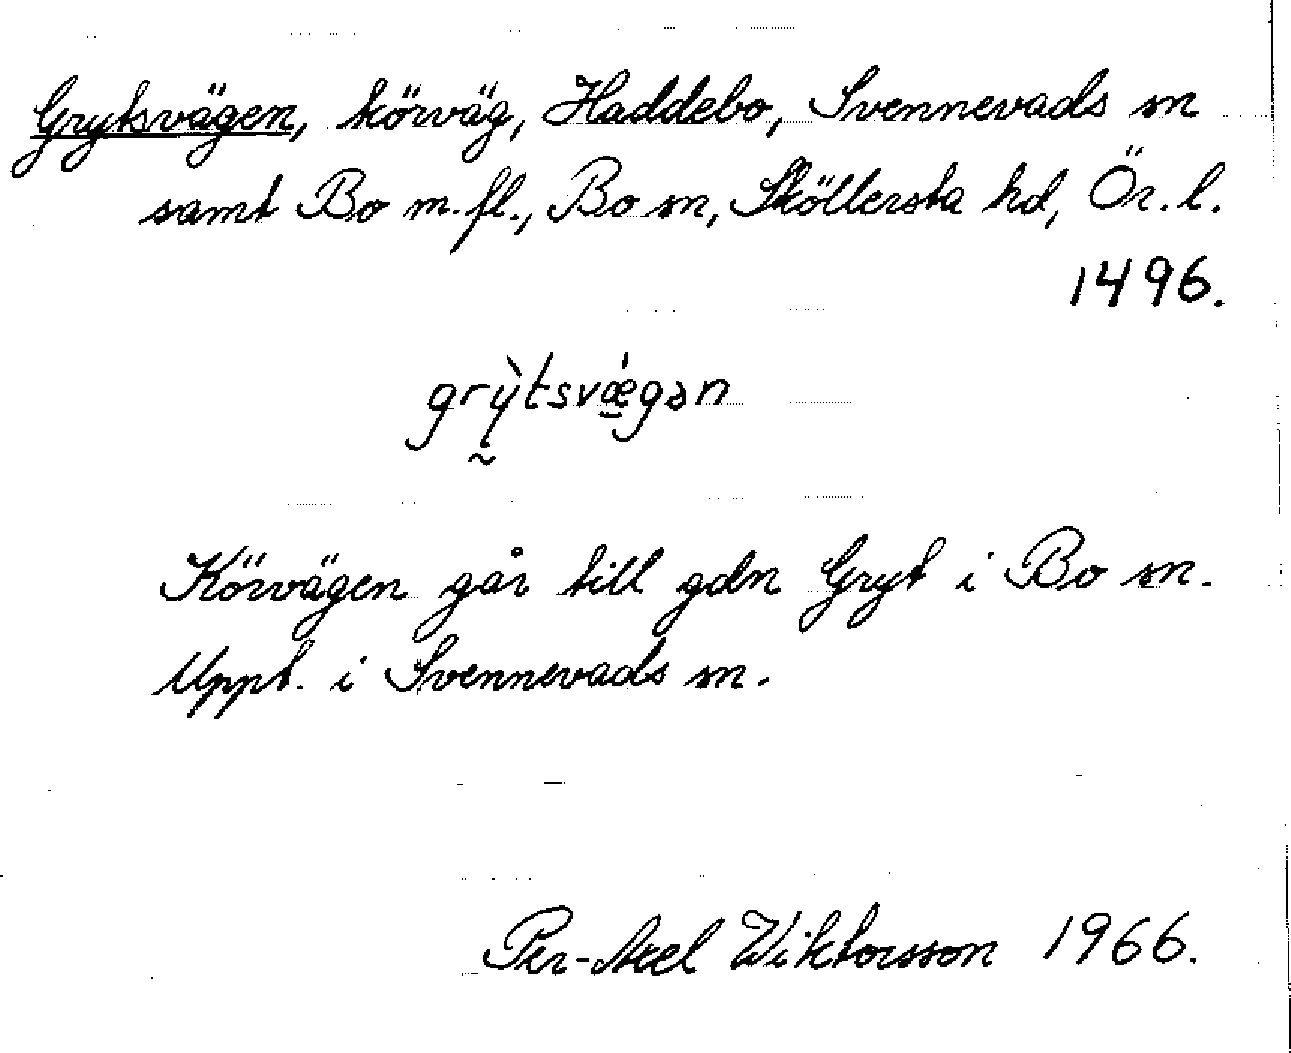 Grytsvägen, körväg, Haddebo, Svennevads sn
samt Bo m.fl., Bo sn, Sköllersta hd, Ör. l.
1496.
grỳtsvǽgən
Körvägen går till gdn Gryt i Bo sn.
Uppt. i Svennevads sn.
Per-Axel Wiktorsson 1966.